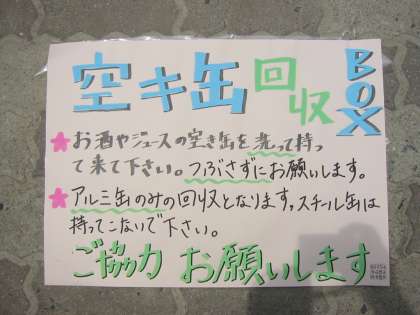 空キ缶回収BOX
お酒やジュースの空き缶を洗って持っ
て来て下さい。つぶさずにお願いします。
アルミ缶のみの回収となります。スチール缶は
持ってこないで下さい。
ご協力 お願いします